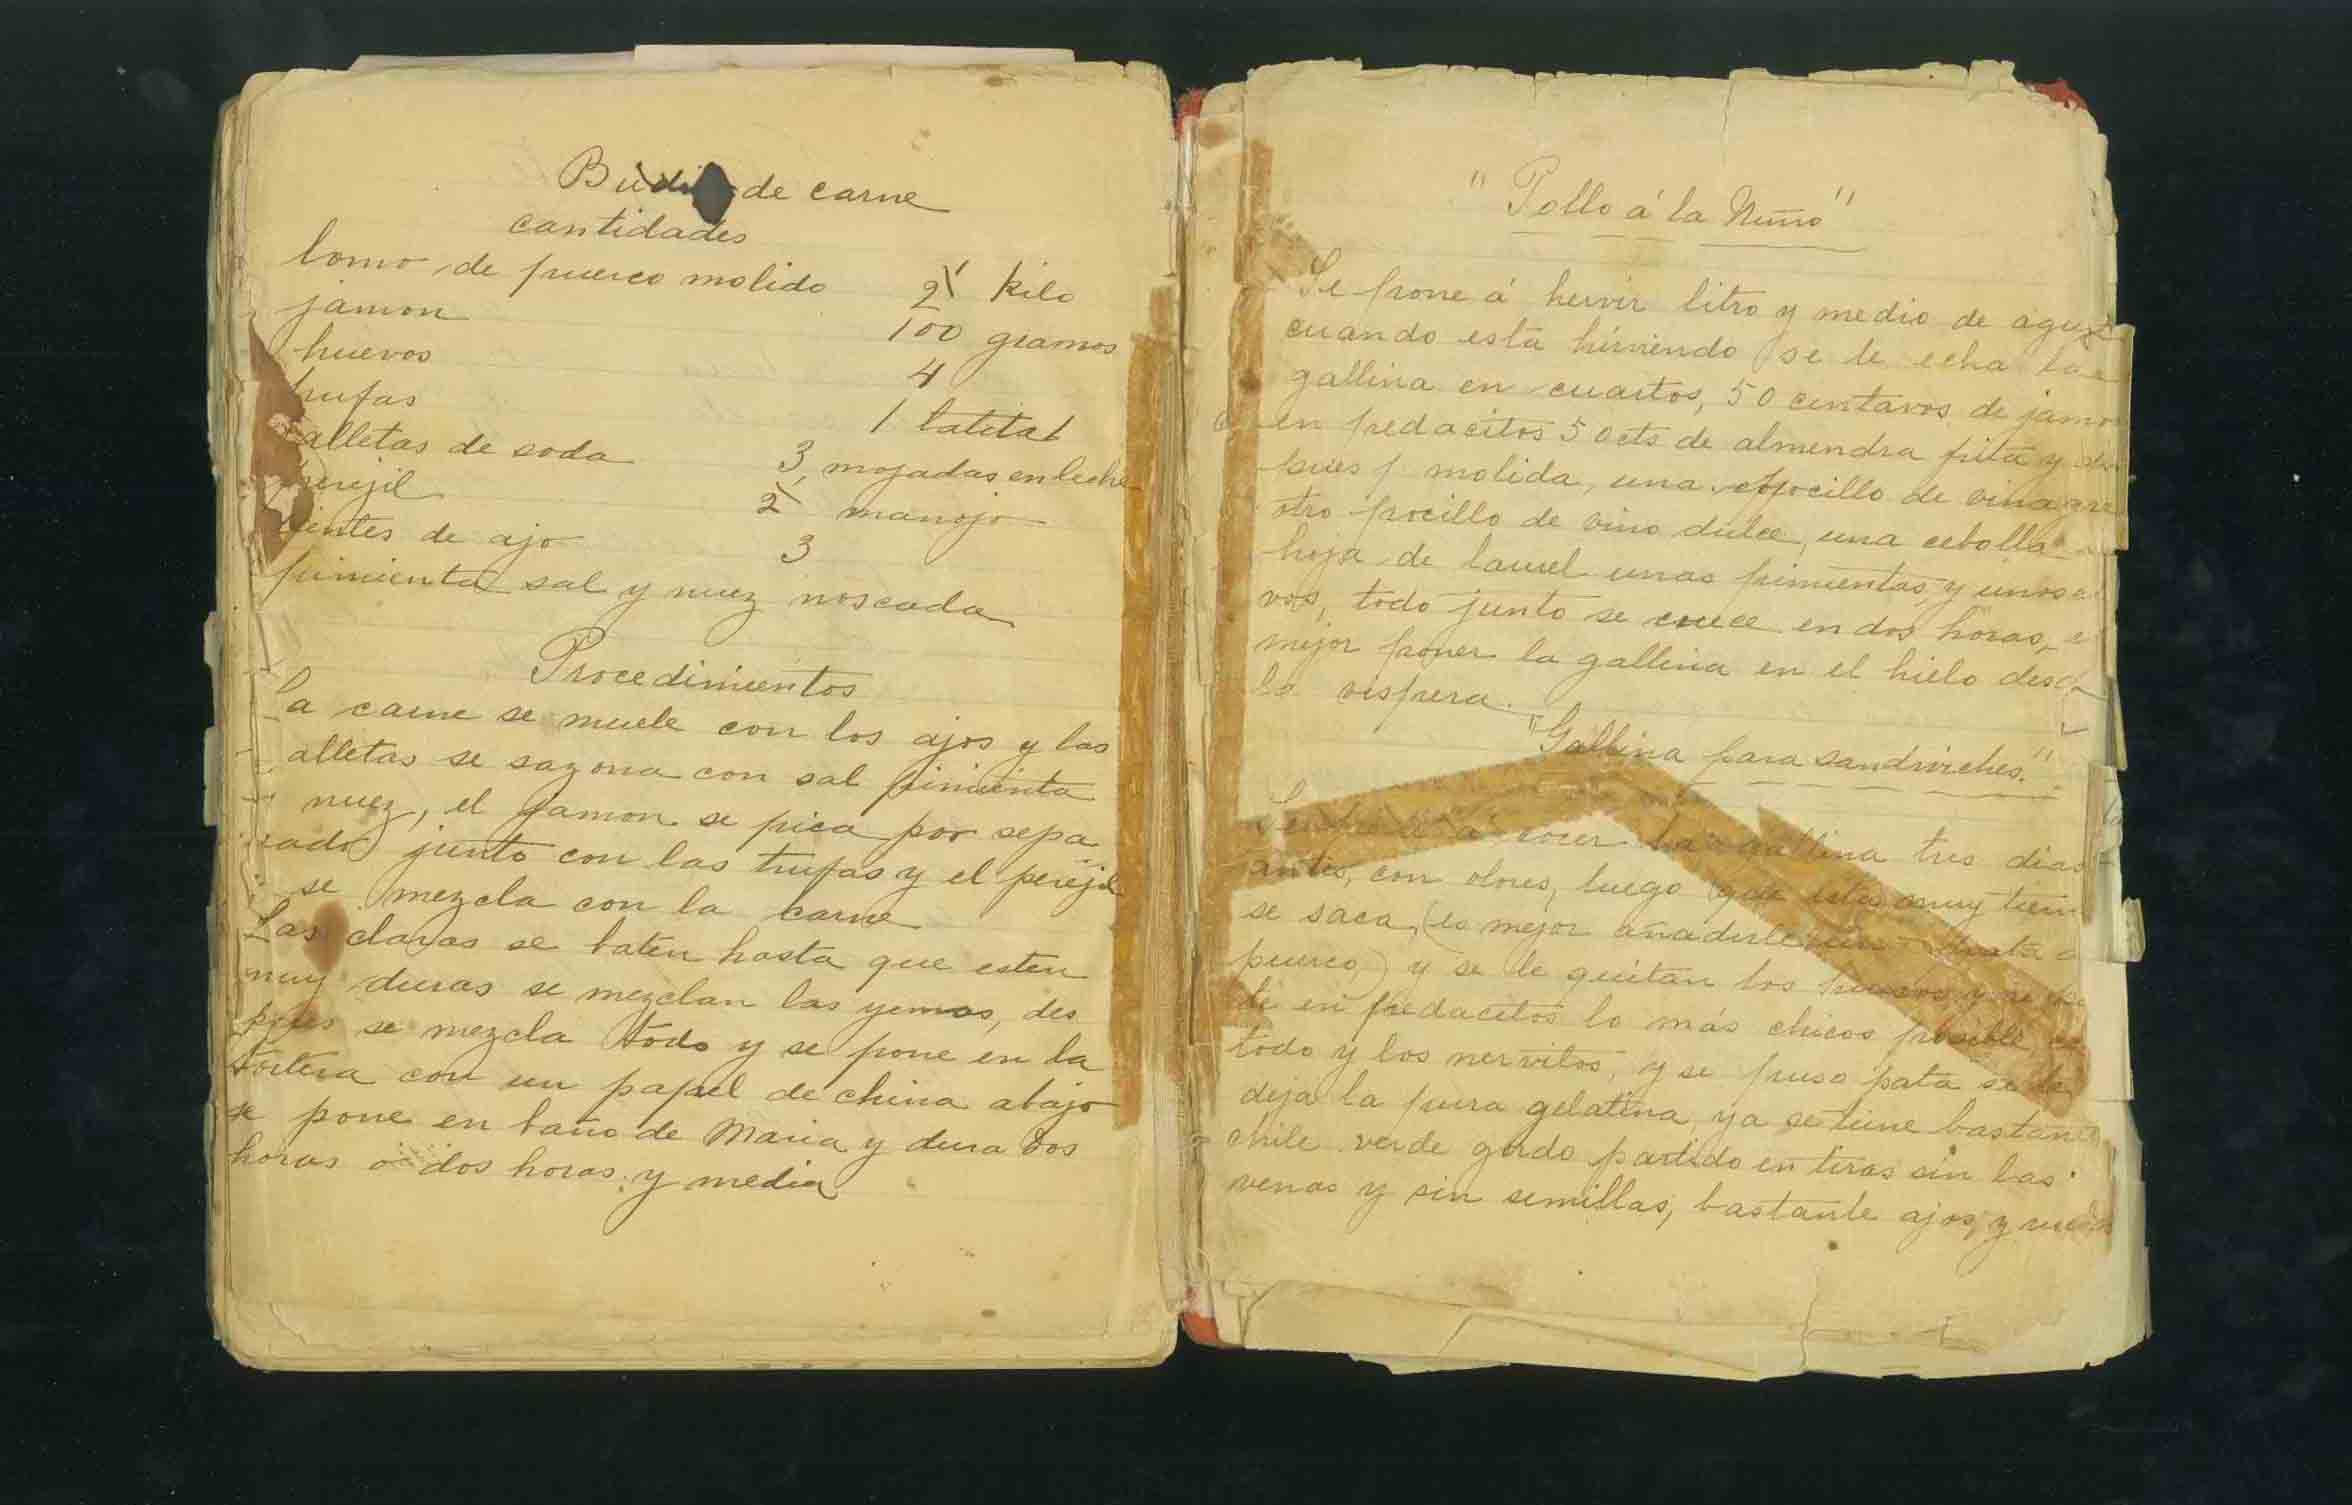 Budin de carne
cantidades
lomo de puerco molido 1/2 kilo
jamon 100 gramos
huevos 4
trufas 1 latita
alletas de soda 3, mojadas en leche
perejil 1/2 manojo
dientes de ajo 3
pimienta sal y nuez noscada
Procedimientos
La carne se muele con los ajos y las
alletas se sazona con sal pimienta
nuez, el jamon se pica por sepa
rado junto con las trufas y el perejil
se mezcla con la carne
Las claras se baten hasta que esten
muy duras se mezclan las yemas, des
pues se mezcla todo y se pone en la
tortera con un papel de china abajo
se pone en baño de Maria y dura dos
horas o dos horas y media
"Pollo á la Nuño"
Se pone á hervir litro y medio de agua
cuando esta hirviendo se le echa la
gallina en cuartos, 50 centavos de jamon
en pedacitos 50 cts de almendra frita y des
pues molida, una pocillo de vinagre
otro pocillo de vino dulce, una cebolla
hoja de laurel unas pimientas, y unos cla
vos, todo junto se cuece en dos horas, es
mejor poner la gallina en el hielo desde
la vispera.
"Gallina para sandwiches."
Se pone á cocer la gallina tres dias
antes, con olores, luego que esta muy tiern
se saca, (es mejor añadirle una pata
puerco,) y se le quitan los huesos y se
te en pedacitos lo más chicos posible
todo y los nervitos, y se puso pata se le
deja la pura gelatina, ya se tiene bastante
chile verde gordo partido en tiras sin las
venas y sin semillas, bastante ajos, y